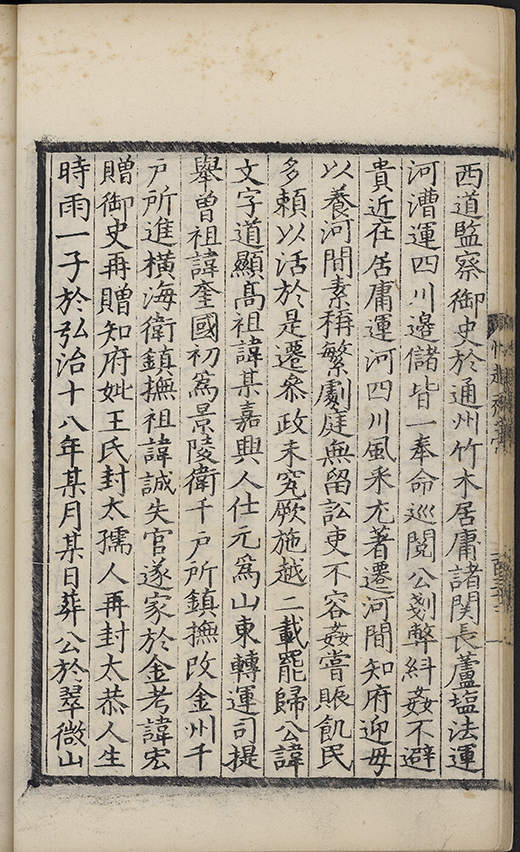 西道監察御史於通州竹木居庸諸関長蘆塩法運
河漕運四川邊儲皆一奉命巡閱公剗弊糾姦不避
貴近在居庸運河四川風釆尤著遷河間知府迎母
以養河間素稱繁劇庭無留訟吏不容姦嘗賑飢民
多頼以活於是遷叅政未究厥施越二載罷歸公諱
文字道顯髙祖諱某嘉興人仕元爲山東轉運司提
舉曽祖諱奎國初爲景陵衛千戸所鎮撫改金州千
戸所進橫海衛鎮撫祖諱誠失官遂家於金考諱宏
贈御史再贈知府妣王氏封太孺人再封太恭人生
時雨一子於弘治十八年某月某日葬公於翠微山